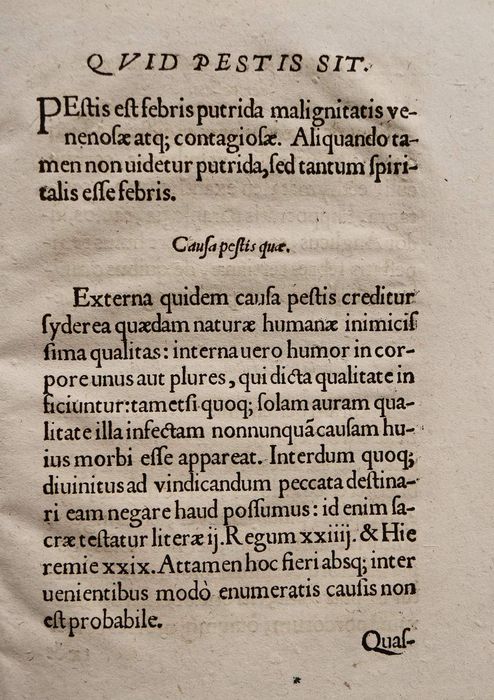 QVID PESTIS SIT.
PEstis est febris putrida malignitatis ve-
nenosæ atq; contagiosæ. Aliquando ta-
men non uidetur putrida, sed tantum spiri-
talis esse febris.
Causa pestis quæ.
Externa quidem causa pestis creditur
syderea quædam naturæ humanæ inimicis
sima qualitas: interna uero humor in cor-
pore unus aut plures, qui dicta qualitate in
ficiuntur: tametsi quoq; solam auram qua-
litate illa infectam nonnunquã causam hu-
ius morbi esse appareat. Interdum quoq;
diuinitus ad vindicandum peccata destina-
ri eam negare haud possumus: id enim sa-
cræ testatur literæ ij. Regum xxiiij. & Hie
remie xxix. Attamen hoc fieri absq; inter
uenientibus modò enumeratis causis non
est probabile.
Quas-